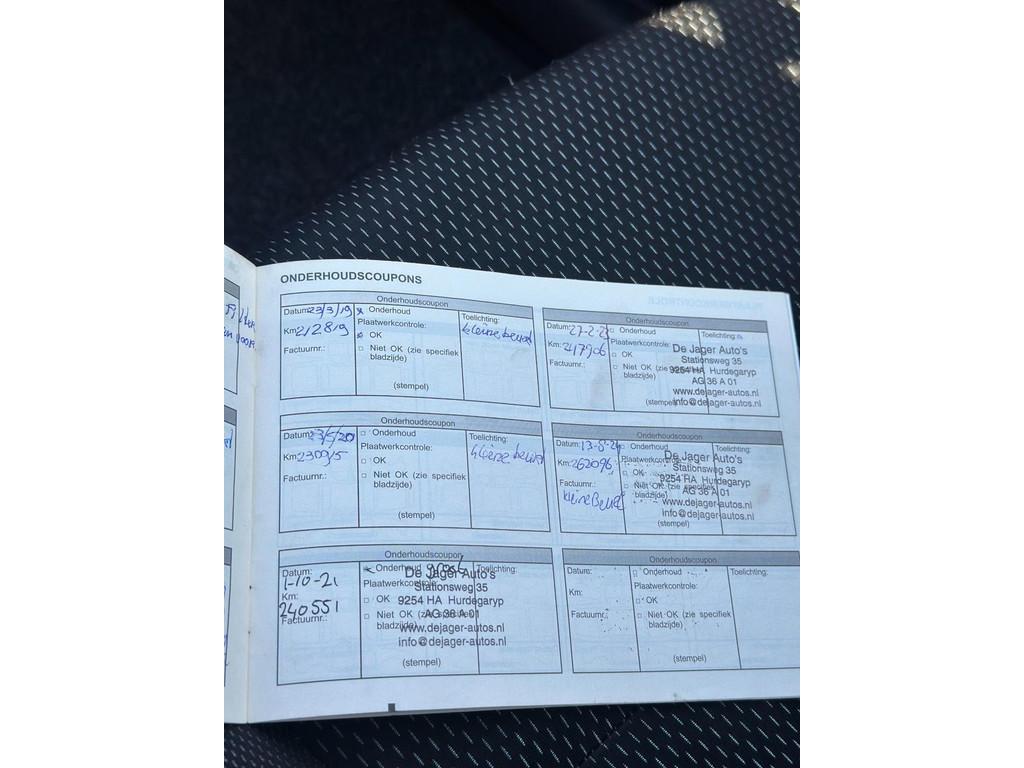 ONDERHOUDSCOUPONS
Onderhoudscoupon
Datum: 23/3/19
Km: 212819
Factuurnr.:
Onderhoud
Plaatwerkcontrole:
OK
Niet OK (zie specifiek
bladzijde)
(stempel)
Toelichting:
kleine beurt
Onderhoudscoupon
Datum: 27-2-23
Km: 247906
Factuurnr.:
Onderhoud
Plaatwerkcontrole:
OK
Niet OK (zie
bladzijde)
(stempel)
Toelichting:
De Jager Auto's
Stationsweg 35
9254 HA Hurdegaryp
AG 36 A 01
www.dejager-autos.nl
info@dejager-autos.nl
Onderhoudscoupon
Datum: 23/5/20
Km: 230915
Factuurnr.:
Onderhoud
Plaatwerkcontrole:
OK
Niet OK (zie specifiek
bladzijde)
(stempel)
Toelichting:
kleine beurt
Onderhoudscoupon
Datum: 13-8-24
Km: 262096
Factuurnr.:
kleine Beurt
Onderhoud
Plaatwerkcontrole:
OK
Niet OK (zie specifiek
bladzijde)
(stempel)
Toelichting:
De Jager Auto's
Stationsweg 35
9254 HA Hurdegaryp
AG 36 A 01
www.dejager-autos.nl
info@dejager-autos.nl
Onderhoudscoupon
Datum:
1-10-21
Km:
240551
Factuurnr.:
Onderhoud groot
Plaatwerkcontrole:
OK
Niet OK (zie specifiek
bladzijde)
(stempel)
Toelichting:
De Jager Auto's
Stationsweg 35
9254 HA Hurdegaryp
AG 36 A 01
www.dejager-autos.nl
info@dejager-autos.nl
Onderhoudscoupon
Datum:
Km:
Factuurnr.:
Onderhoud
Plaatwerkcontrole:
OK
Niet OK (zie specifiek
bladzijde)
(stempel)
Toelichting: